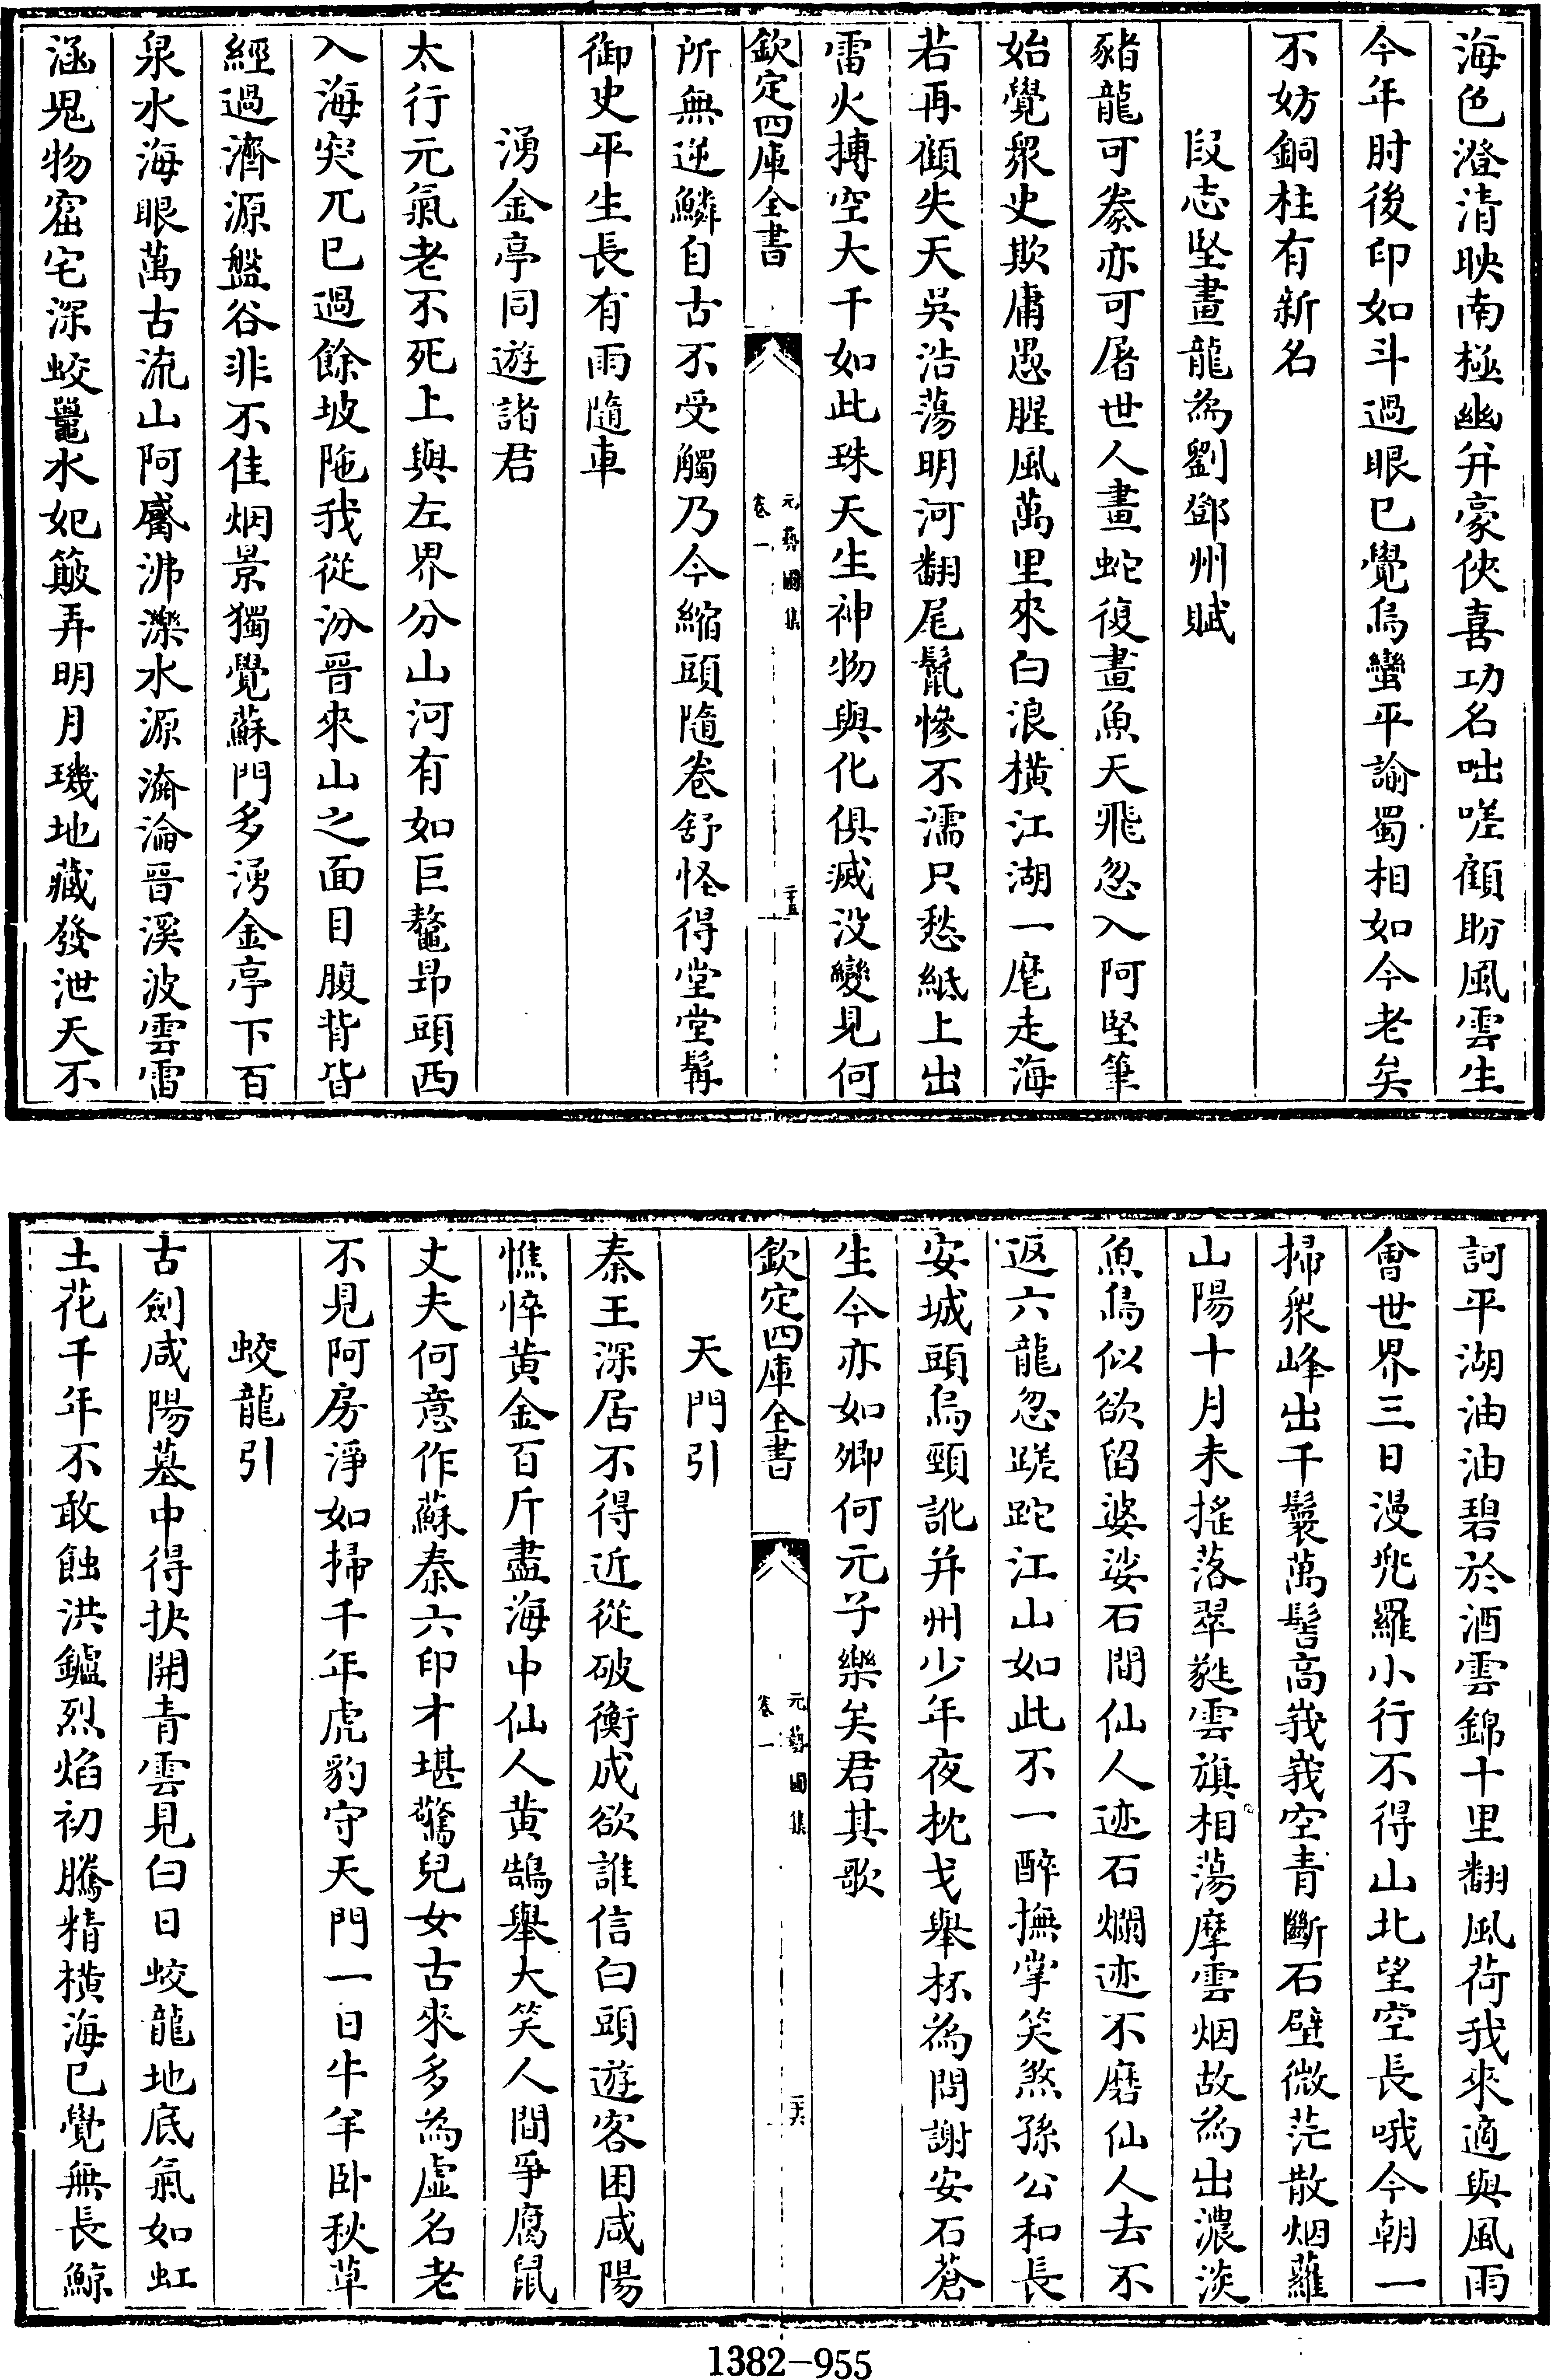 海色澄清映南極幽并豪俠喜功名咄嗟顧盼風雲生
今年肘後印如斗過眼已覺烏蠻平諭蜀相如今老矣
不妨銅柱有新名
段志堅畫龍為劉鄧州賦
豬龍可豢亦可屠世人畫蛇復畫魚天飛忽入阿堅筆
始覺衆史欺庸愚腥風萬里來白浪橫江湖一麾走海
若再顧失天吳浩蕩明河翻尾鬛慘不濡只愁紙上出
雷火搏空大千如此珠天生神物與化俱滅没變見何
欽定四庫全書
元藝圃集
卷一
二十五
所無逆鱗自古不受觸乃今縮頭隨卷舒怪得堂堂髯
御史平生長有雨隨車
湧金亭同遊諸君
太行元氣老不死上與左界分山河有如巨鼇昻頭西
入海突兀已過餘坡陁我從汾晉來山之面目腹背皆
經過濟源盤谷非不佳烟景獨覺蘇門多湧金亭下百
泉水海眼萬古流山阿觱沸濼水源瀹淪晉溪波雲雷
涵鬼物窟宅深蛟鼉水妃簸弄明月璣地藏發泄天不
訶平湖油油碧於酒雲錦十里翻風荷我來適與風雨
會世界三日漫兠羅小行不得山北望空長哦今朝一
掃衆峰出千鬟萬髻高峩峩空青斷石壁微茫散烟蘿
山陽十月未搖落翠蕤雲旗相蕩摩雲烟故為出濃淡
魚鳥似欲留婆娑石間仙人迹石爛迹不磨仙人去不
返六龍忽蹉跎江山如此不一醉撫掌笑煞孫公和長
安城頭烏頸訛并州少年夜枕戈舉杯為問謝安石蒼
生今亦如卿何元子樂矣君其歌
欽定四庫全書
元藝圃集
卷一
二十六
天門引
秦王深居不得近從破衡成欲誰信白頭遊客困咸陽
憔悴黄金百斤盡海中仙人黄鵠舉大笑人間爭腐鼠
丈夫何意作蘇秦六印才堪驚兒女古來多為虛名老
不見阿房淨如掃千年虎豹守天門一日牛羊卧秋草
蛟龍引
古劍咸陽墓中得抉開青雲見白日蛟龍地底氣如虹
土花千年不敢蝕洪鑪烈焰初騰精橫海已覺無長鯨
1382-955